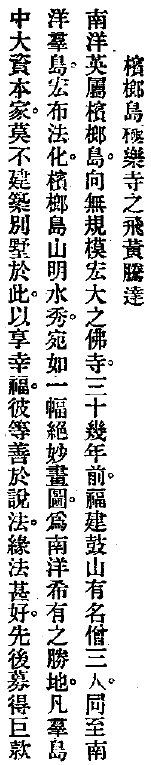 檳榔島極樂寺之飛黃騰達
南洋英屬檳榔島。向無規模宏大之佛寺。三十幾年前。福建鼓山有名僧三人。同至南
洋羣島。宏布法化。檳榔島山明水秀。宛如一幅絕妙畫圖。爲南洋希有之勝地。凡羣島
中大資本家。莫不建築別墅於此。以享幸福。彼等善於說法。緣法甚好。先後募得巨款